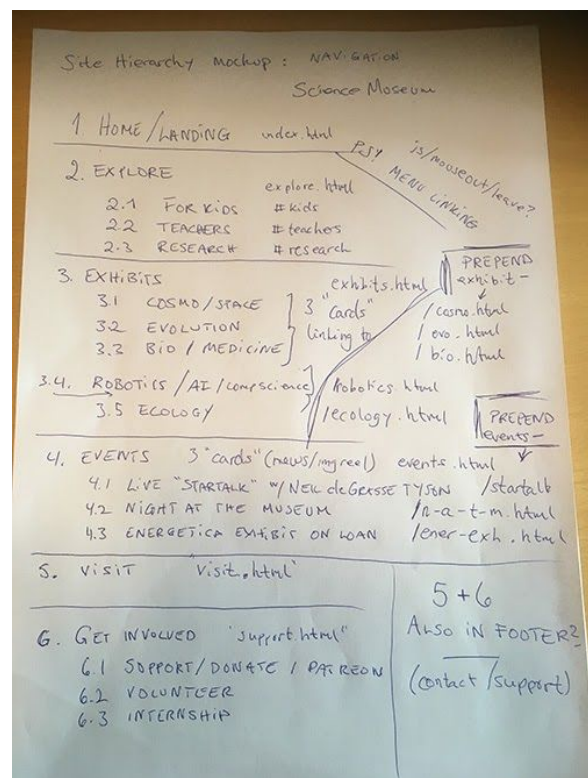 Site Hierarchy Mockup : NAVIGATION
Science Museum
1 HOME/LANDING index.html
PSY! js/mouseout/leave?
MENU LINKING
2. EXPLORE
explore.html
2.1 FOR KIDS #kids
2.2 TEACHERS #teachers
2.3 RESEARCH #research
3. EXHIBITS exhbits.html
PREPEND
exhibit-
3.1 COSMO/SPACE 3 "cards" /cosmo.html
3.2 EVOLUTION linking to /evo.html
3.3 BIO/MEDICINE /bio.html
3.4. ROBOTICS/AI/compscience /robotics.html
3.5 ECOLOGY /ecology.html
PREPEND
events-
4. EVENTS 3 "cards" (news/imgreel) events.html
4.1 LIVE "STARTALK" w/ NEIL deGRASSE TYSON /startalk
4.2 NIGHT AT THE MUSEUM /n-a-t-m.html
4.3 ENERGETICA EXHIBIS ON LOAN /ener-exh.html
5. VISIT visit.html
6. GET INVOLVED "support.html"
6.1 SUPPORT/DONATE/PATREON
6.2 VOLUNTEER
6.3 INTERNSHIP
5+6
ALSO IN FOOTER?
(contact/support)